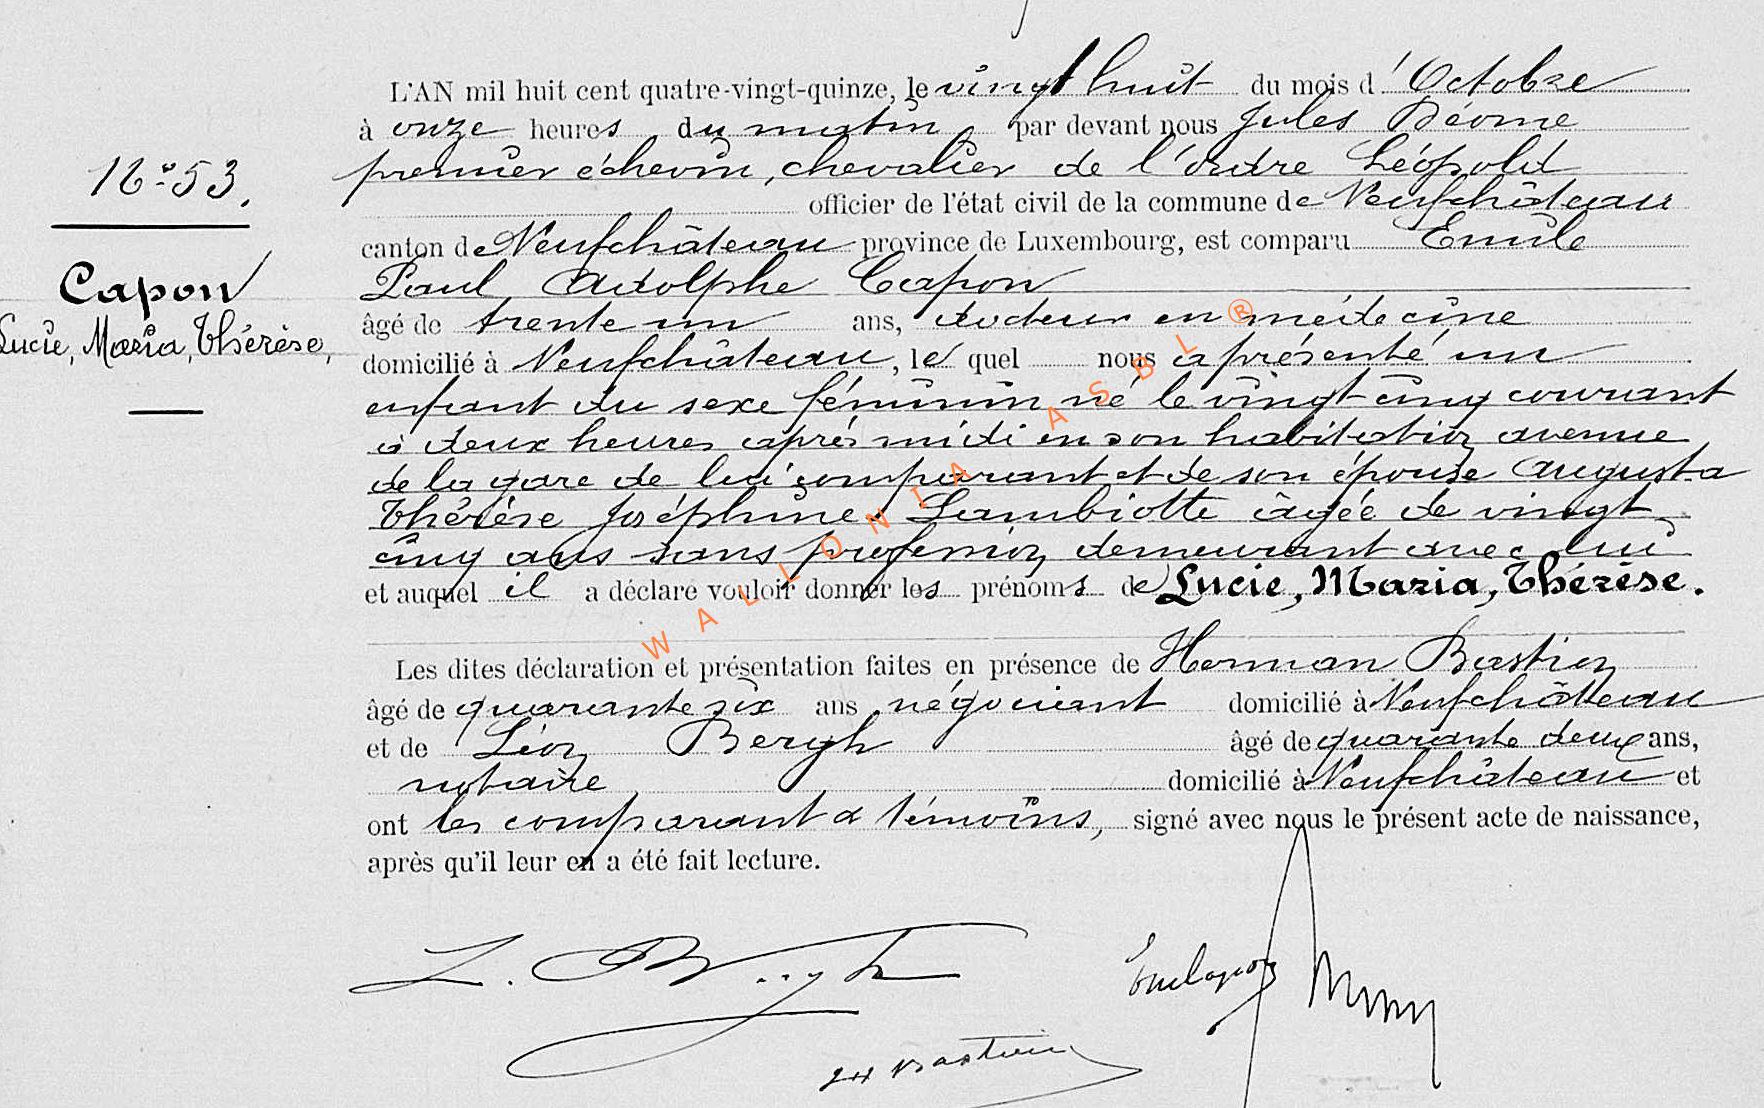 L'AN mil huit cent quatre-vingt-quinze, le vingt huit du mois d'Octobre
à onze heures du matin par devant nous Jules
premier échevin, chevalier de l'ordre Léopold
officier de l'état civil de la commune de Neufchâteau
canton de Neufchâteau province de Luxembourg, est comparu Emile
Paul Adolphe Capon
âgé de trente un ans, docteur en médecine
domicilié à Neufchâteau, le quel nous a présenté un
enfant du sexe féminin né le vingt cinq courant
à deux heures après midi en son habitation avenue
de la gare de lui comparant et de son épouse Augusta
Thérèse Joséphine Lambiotte âgée de vingt
cinq ans sans profession demeurant avec lui
et auquel il a déclaré vouloir donner les prénoms de Lucie, Maria, Thérèse.
Les dites déclaration et présentation faites en présence de Herman Bastien
âgé de quarante six ans négociant domicilié à Neufchâteau
et de Léon Bergh âgé de quarante deux ans,
notaire domicilié à Neufchâteau et
ont les comparant & témoins, signé avec nous le présent acte de naissance,
après qu'il leur en a été fait lecture.
N° 53.
Capon
Lucie, Maria, Thérèse,
L. Bergh
Emile Capon
H Bastien
WALLONIA ASBL ®